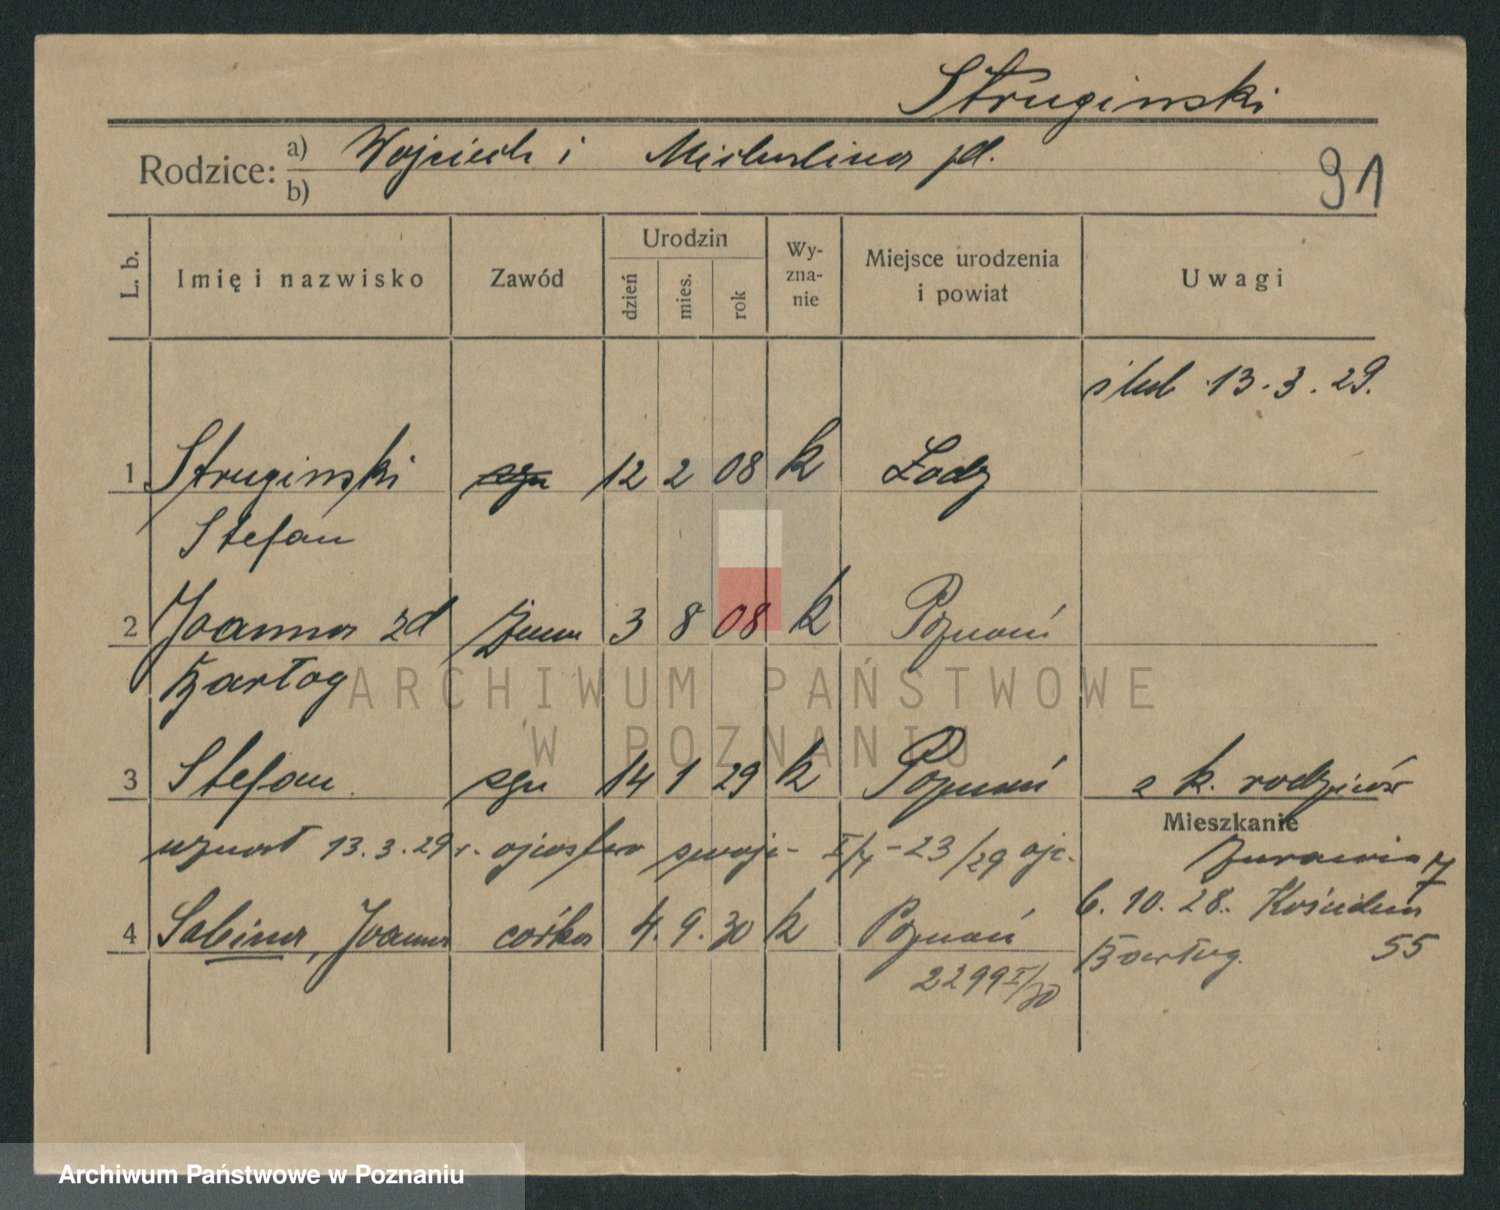 Struginski
Rodzice: a) Wojciech i Michalina
b)
91
L. b.
Imię i nazwisko
Zawód
Urodzin
dzień
mies.
rok
Wy-
zna-
nie
Miejsce urodzenia
i powiat
Uwagi
ślub 13.3.29.
1 Struginski syn 12 2 08 k Łodz
Stefan
2 Joanna zd żona 3 8 08 k Poznań
Bartog
ARCHIWUM PAŃSTWOWE
W POZNANIU
3 Stefan syn 14 1 29 k Poznań a k. rodziców
Mieszkanie
uznał 13.3.29 r. ojcostwo swoje - 23/29 ojc.
Żurawia 7
6.10.28.
4 Sabina, Joanna córka 4. 9. 30 k Poznań
55
2299 I/30
Archiwum Państwowe w Poznaniu